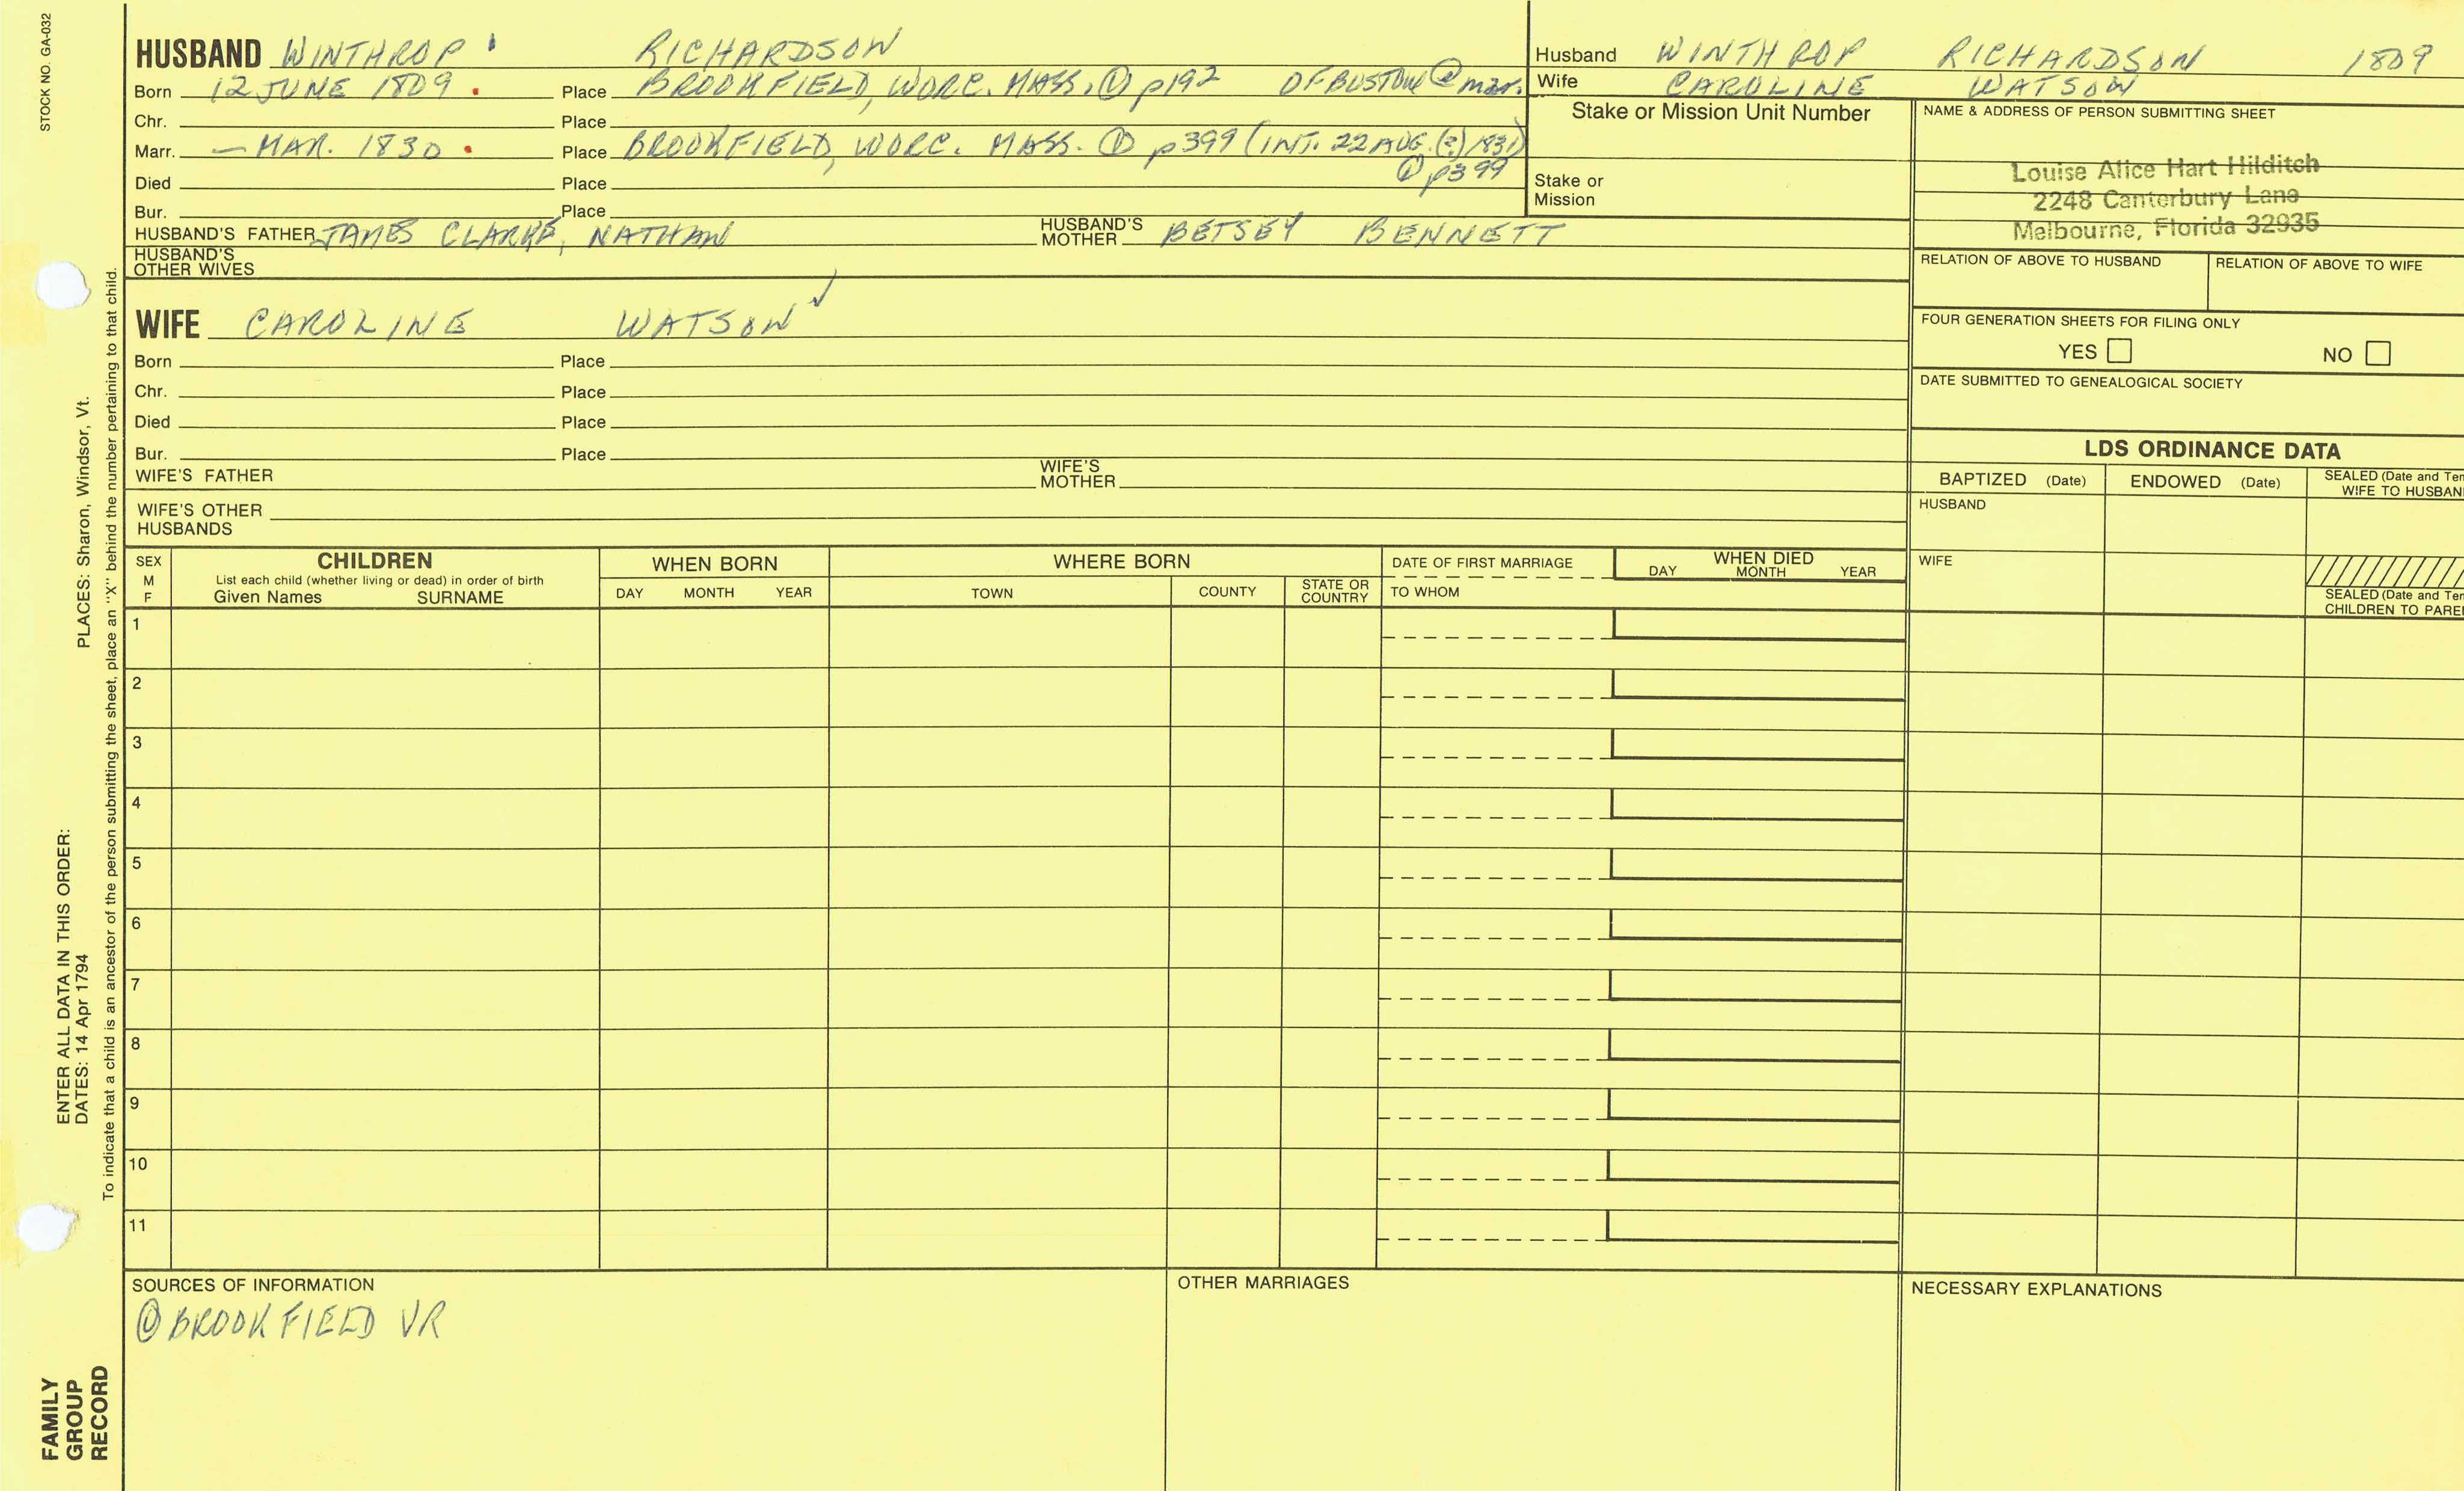 STOCK NO. GA-032
HUSBAND WINTHROP RICHARDSON
Born 12 JUNE 1809. Place BROOKFIELD, WORC. MASS. ① p192 OF BOSTON @ mar.
Chr. Place
Marr. — MAR. 1830. Place BROOKFIELD, WORC. MASS. ① p399 (INT. 22 AUG. (?) 1831)
① p399
Died Place
Bur. Place
HUSBAND'S FATHER JAMES CLARKE, NATHAN HUSBAND'S MOTHER BETSEY BENNETT
HUSBAND'S
OTHER WIVES
Husband WINTHROP RICHARDSON 1809
Wife CAROLINE WATSON
Stake or Mission Unit Number
Stake or
Mission
NAME & ADDRESS OF PERSON SUBMITTING SHEET
Louise Alice Hart Hilditch
2248 Canterbury Lane
Melbourne, Florida 32935
RELATION OF ABOVE TO HUSBAND RELATION OF ABOVE TO WIFE
FOUR GENERATION SHEETS FOR FILING ONLY
YES NO
DATE SUBMITTED TO GENEALOGICAL SOCIETY
WIFE CAROLINE WATSON ✓
Born Place
Chr. Place
Died Place
Bur. Place
WIFE'S FATHER WIFE'S MOTHER
WIFE'S OTHER
HUSBANDS
LDS ORDINANCE DATA
BAPTIZED (Date) ENDOWED (Date) SEALED (Date and Tem
WIFE TO HUSBAN
HUSBAND
WIFE
SEALED (Date and Tem
CHILDREN TO PARE
SEX
M
F
CHILDREN
List each child (whether living or dead) in order of birth
Given Names SURNAME
WHEN BORN
DAY MONTH YEAR
WHERE BORN
TOWN COUNTY STATE OR COUNTRY
DATE OF FIRST MARRIAGE
TO WHOM
WHEN DIED
DAY MONTH YEAR
1
2
3
4
5
6
7
8
9
10
11
SOURCES OF INFORMATION
① BROOKFIELD VR
OTHER MARRIAGES
NECESSARY EXPLANATIONS
ENTER ALL DATA IN THIS ORDER:
DATES: 14 Apr 1794 PLACES: Sharon, Windsor, Vt.
To indicate that a child is an ancestor of the person submitting the sheet, place an "X" behind the number pertaining to that child.
FAMILY
GROUP
RECORD